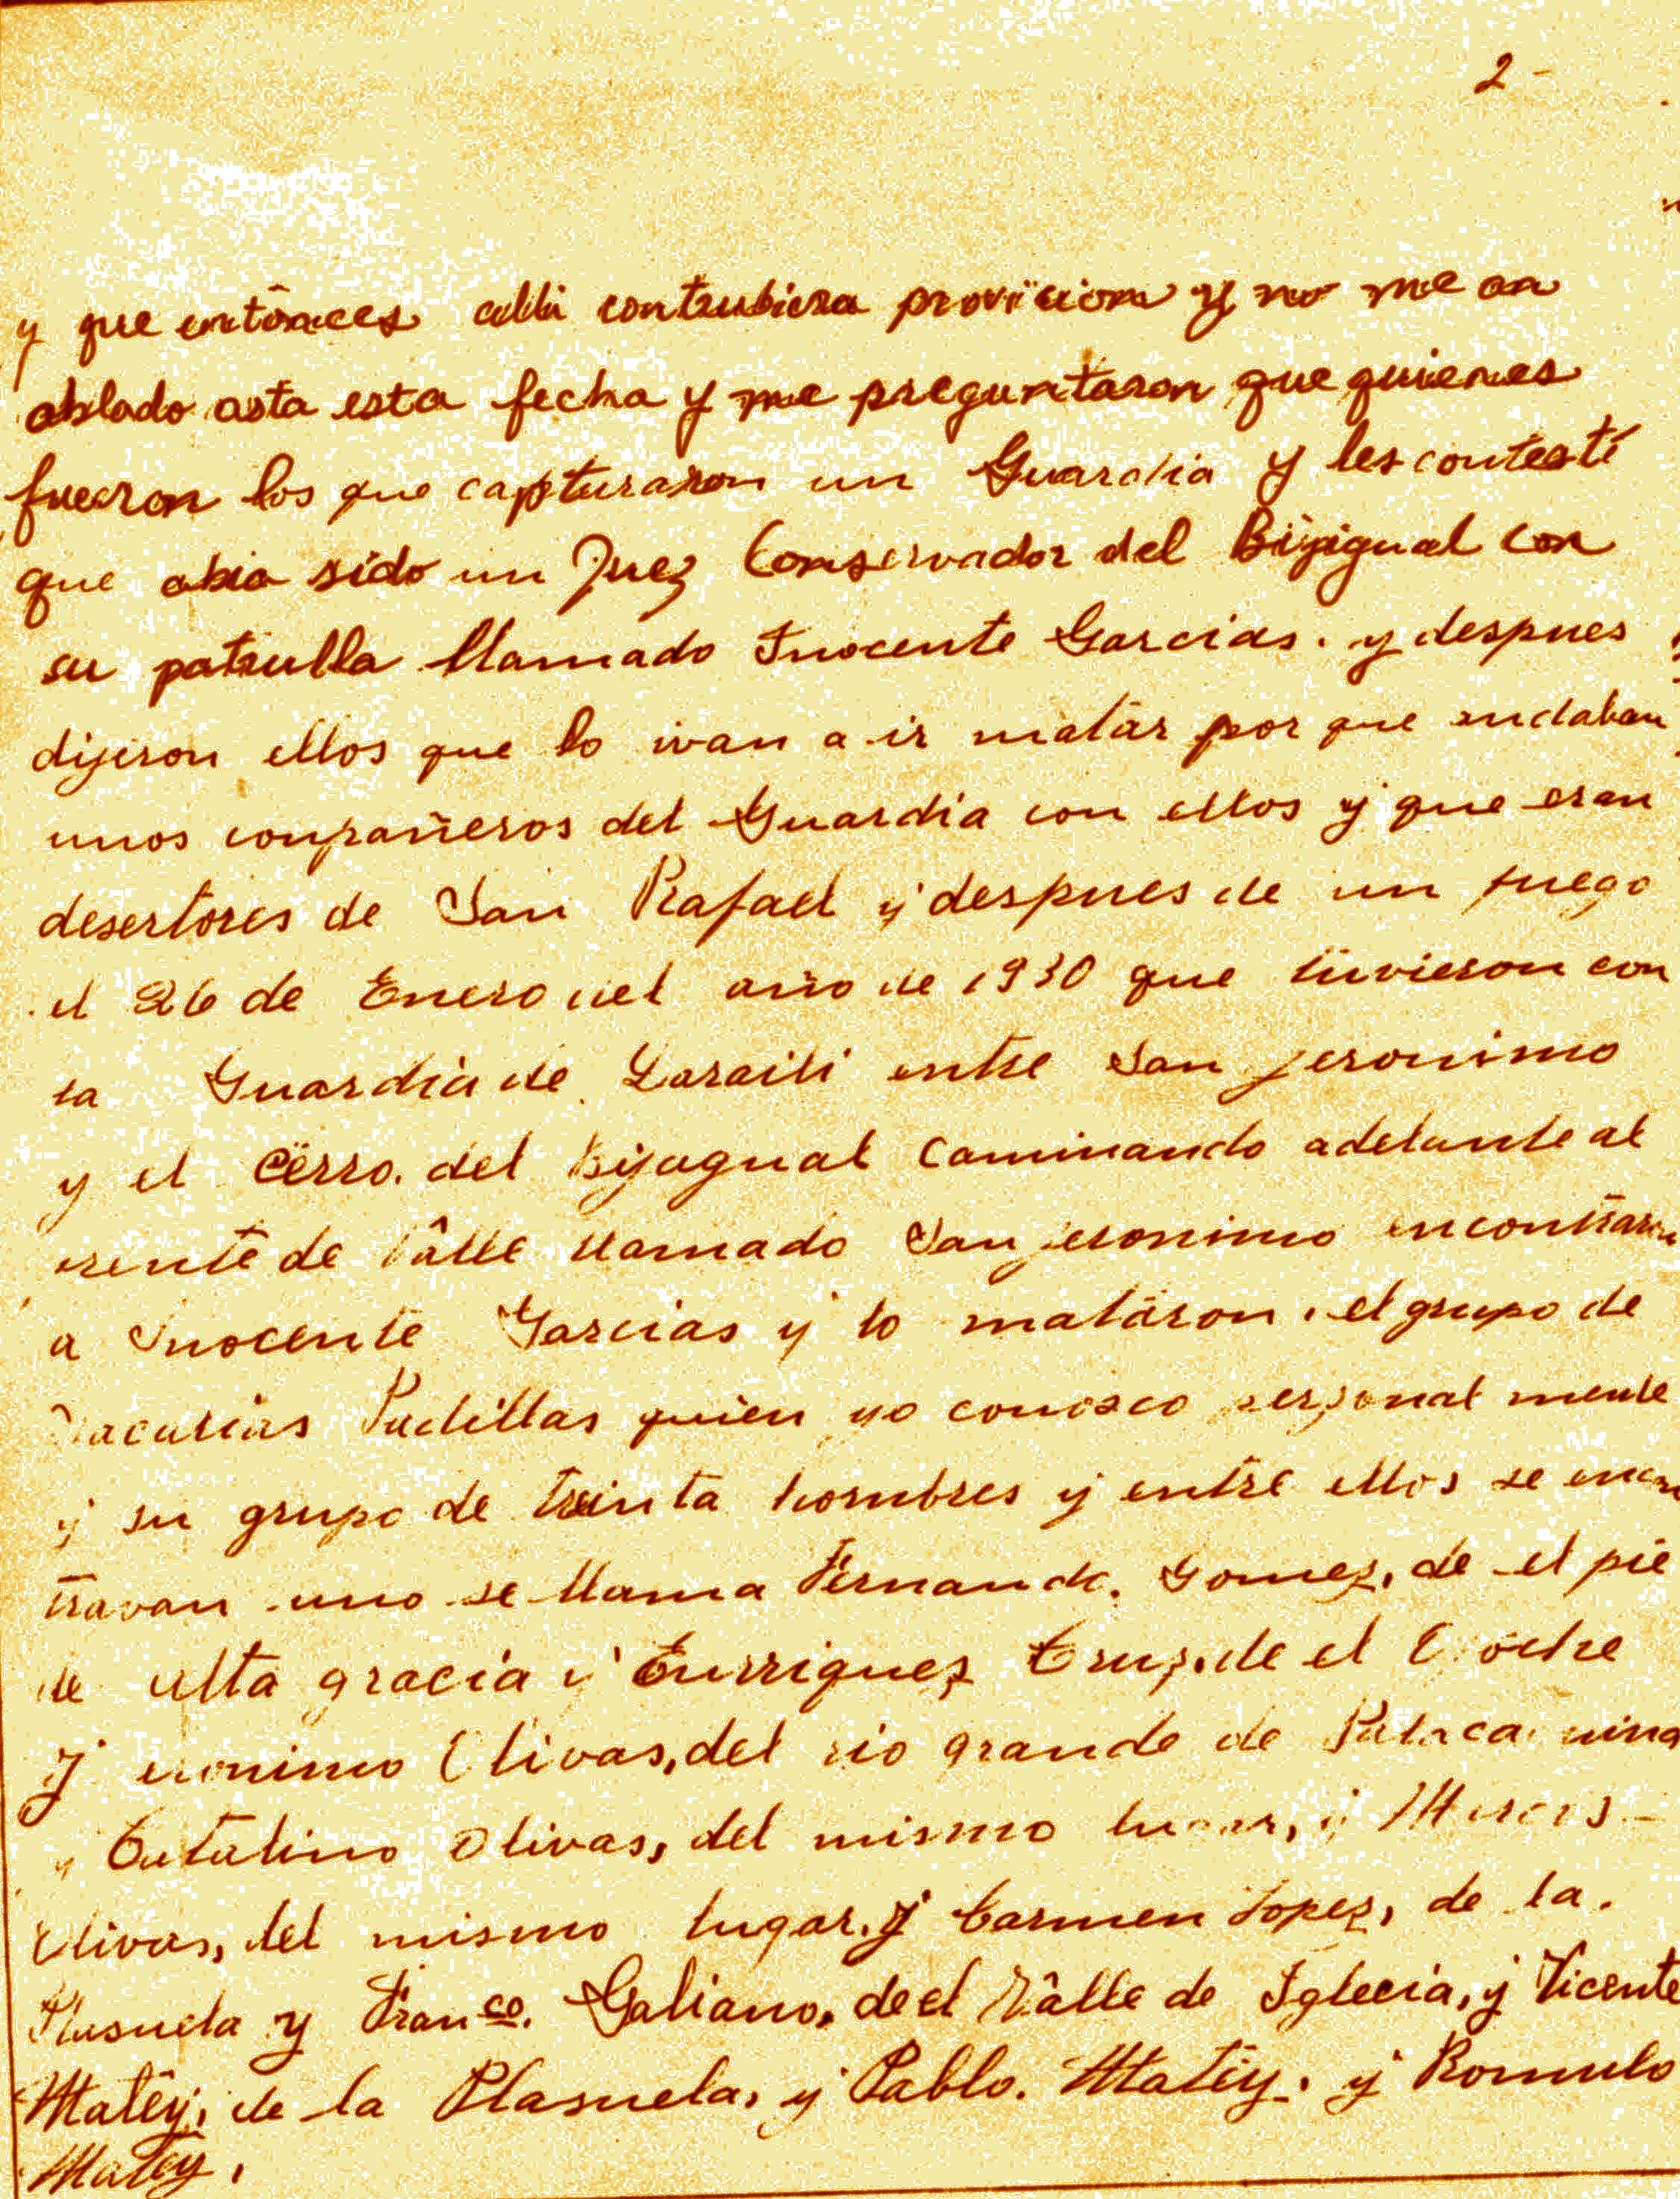 2-
y que entônces alli contrubiera provicion y no me an
ablado asta esta fecha y me preguntaron que quienes
fueron los que capturaron un Guardia y les contesté
que abia sido un Juez Conservador del Bijigual con
su patrulla llamado Inocente Garcias. y despues
dijeron ellos que lo ivan a ir matar por que andaban
unos conpañeros del Guardia con ellos y que eran
desertores de San Rafael y despues de un fuego
el 26 de Enero del año de 1930 que tuvieron con
la Guardia de Daraili entre San jeronimo
y el Cerro. del Bijagual Caminando adelante al
frente de Válle llamado San jeronimo encontraron
a Inocente Garcias y lo mataron. el grupo de
Padillas quien yo conosco personal mente
y su grupo de treinta hombres y entre ellos se encon
travan uno se llama Fernando. Gomez, de el pie
de alta gracia y Enrriquez Cruz, de el Coche
Jeronimo Olivas, del rio grande de
y Catalino Olivas, del mismo lugar, y
Olivas, del mismo lugar. y Carmen Lopez, de la.
Plasuela y Franco. Galiano, de el Válle de Iglecia, y Vicente
Matêy, de la Plasuela, y Pablo. Matêy. y Romulo
Matêy.